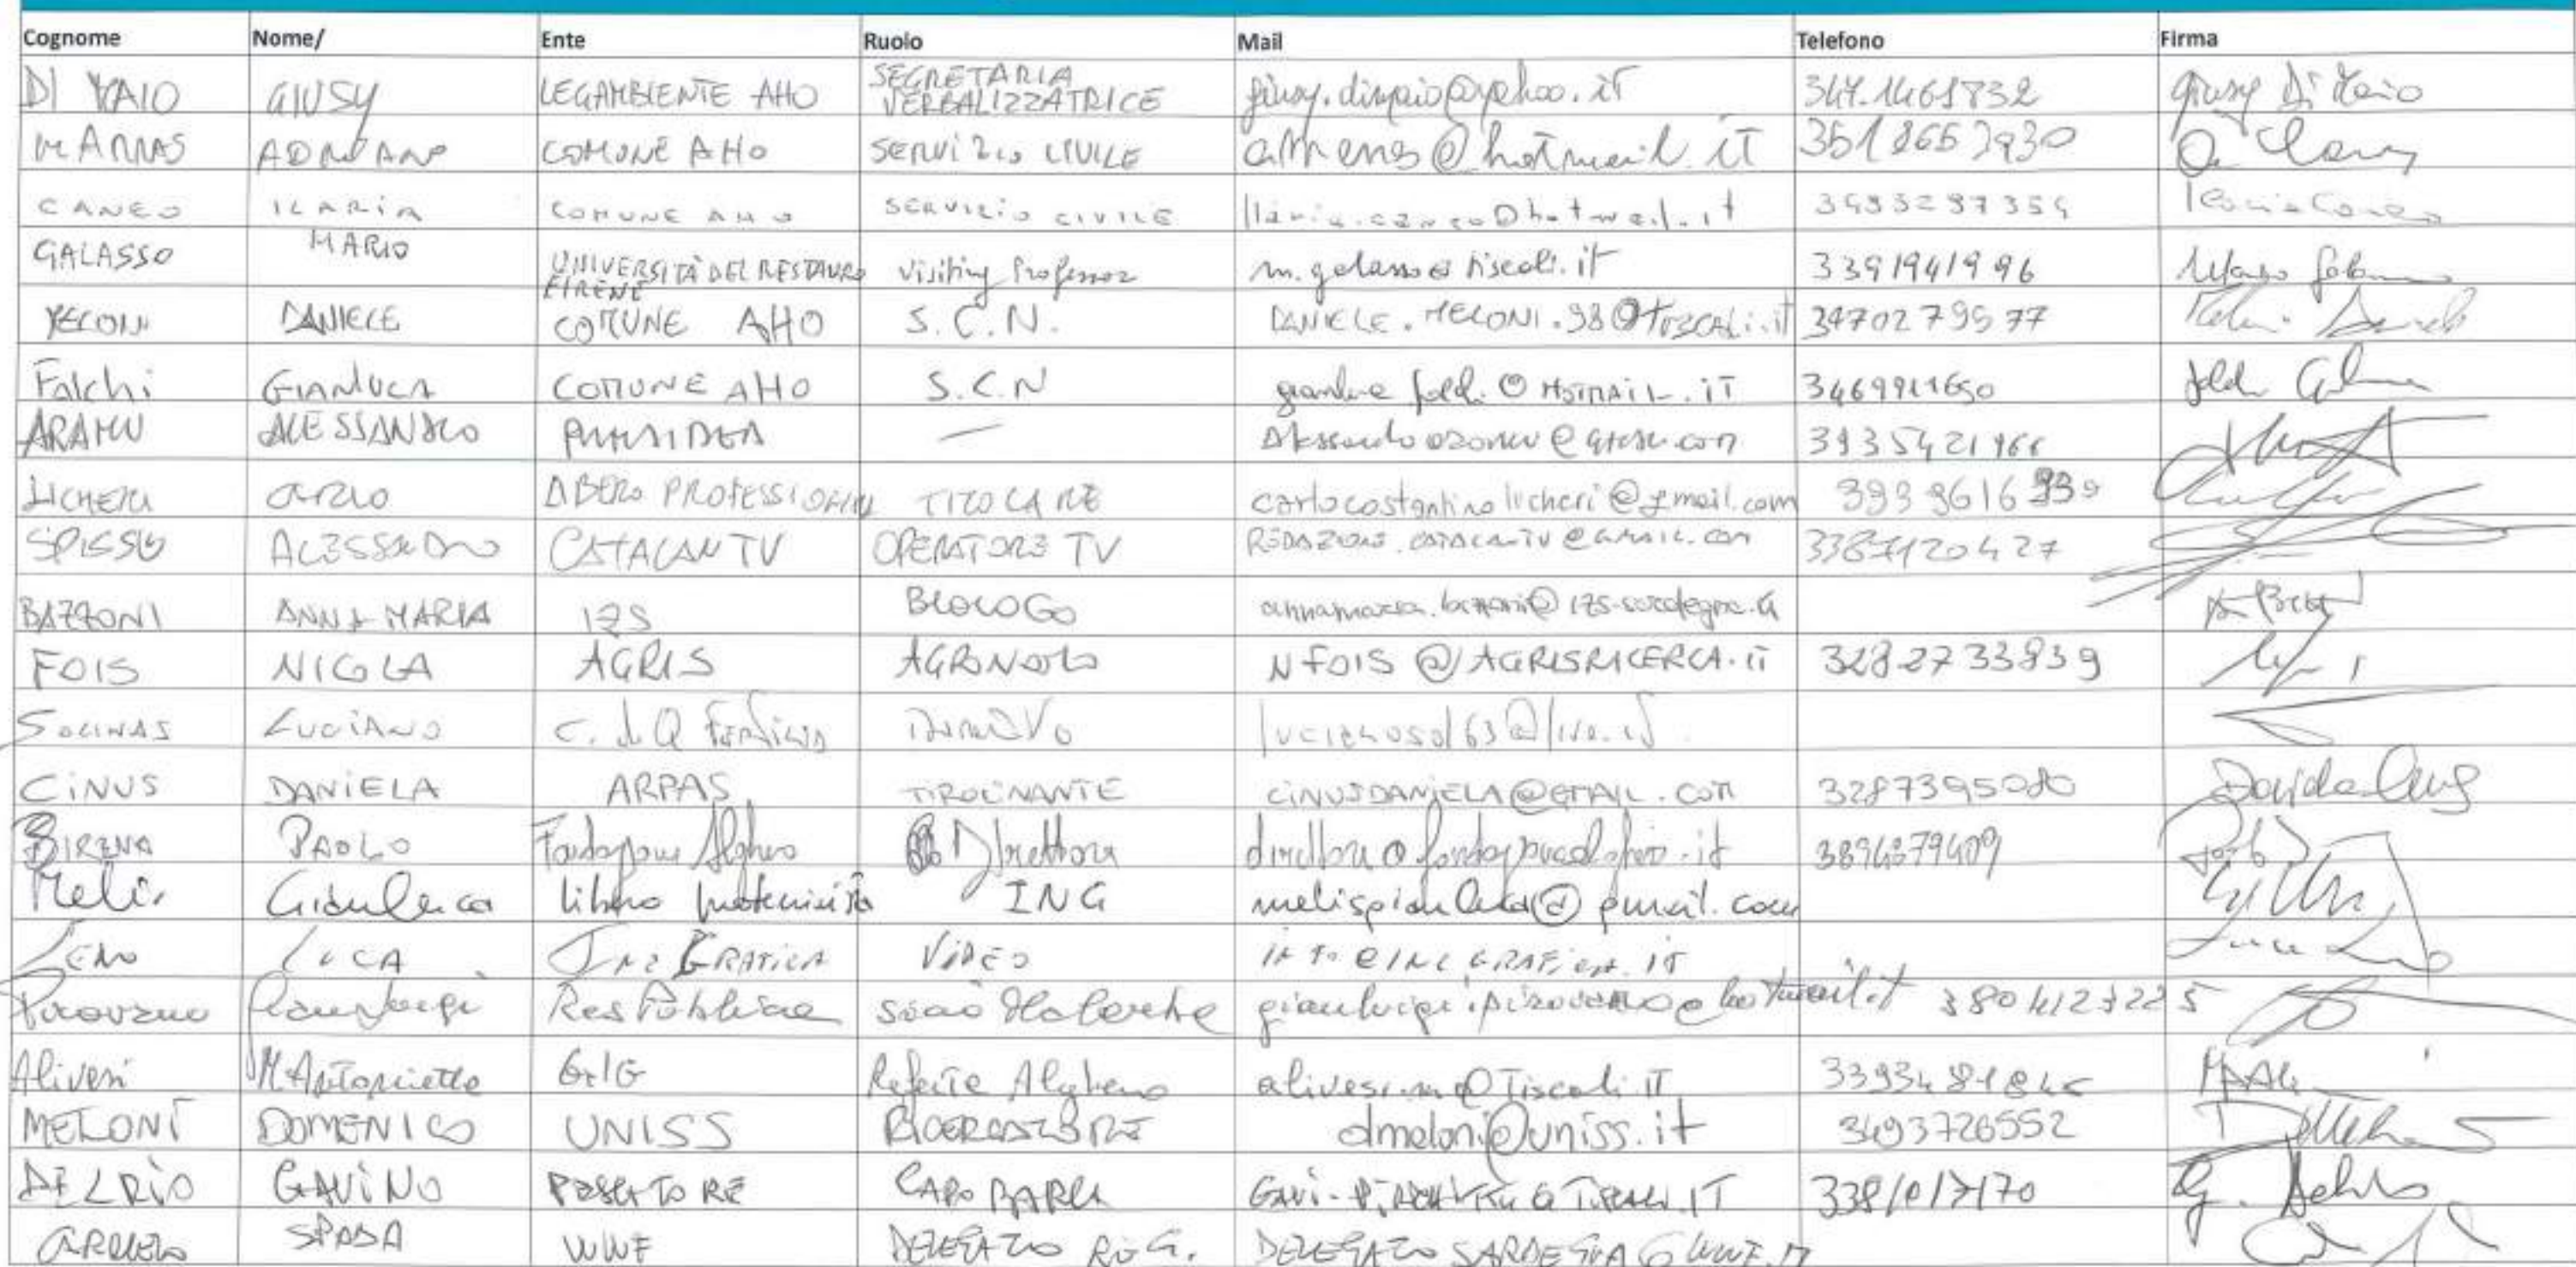 Cognome Nome/ Ente Ruolo Mail Telefono Firma
DI MAIO GIUSY LEGAMBIENTE AHO SEGRETARIA VERBALIZZATRICE giusy.dimaio@yahoo.it 347.1461832 Giusy Di Maio
MARRAS ADRIANO COMUNE AHO SERVIZIO CIVILE @hotmail.it
CANEO ILARIA COMUNE AHO SERVIZIO CIVILE ilaria.caneo@hotmail.it 3493297354 Ilaria Caneo
GALASSO MARIO UNIVERSITÀ DEL RESTAURO FIRENE Visiting Professor m.galasso@tiscali.it 3391941996 Mario Galasso
MELONI DANIELE COMUNE AHO S.C.N. DANIELE.MELONI.98@TISCALI.it 3470279577 Meloni Daniele
Falchi GIANLUCA COMUNE AHO S.C.N gianluca falchi@HOTMAIL.iT 3469911650
ARAMU ALESSANDRO — 3935421966
LICHERI CARLO LIBERO PROFESSIONISTA TITOLARE carlocostantinolicheri@gmail.com 3939616939
SPISSU ALESSANDRO CATALAN TV OPERATORE TV REDAZIONE.CATALANTV@GMAIL.COM 3387120427
BAZZONI ANNA MARIA IZS BIOLOGO annamaria.bazzoni@izs-sardegna.it
FOIS NICOLA AGRIS AGRONOMO NFOIS@AGRISRICERCA.IT 3282733839
SOLINAS LUCIANO C. di Q Fertilia lucianosol63@live.it
CINUS DANIELA ARPAS TIROCINANTE CINUSDANIELA@GMAIL.COM 3287395080 Daniela Cinus
BIRENA PAOLO Fondazione Alghero Direttore direttore@fondazionealghero.it 3894379409
Melis Gianluca libero professionista ING melisgianluca@gmail.com
LENO LUCA INC GRAFICA VIDEO INFO@INCGRAFICA.IT
Pirovano Gianluigi Res Publica gianluigi.pirovano@hotmail.it 3804127225
Alivesi M.Antonietta GrIG Referente Alghero alivesi.m@Tiscali.IT
MELONI DOMENICO UNISS RICERCATORE dmeloni@uniss.it 3493726552
DELRIO GAVINO PESCATORE CAPO BARCA 338/1017170 G. Delrio
CARMELO SPADA WWF DELEGATO DELEGATO SARDEGNA@WWF.IT